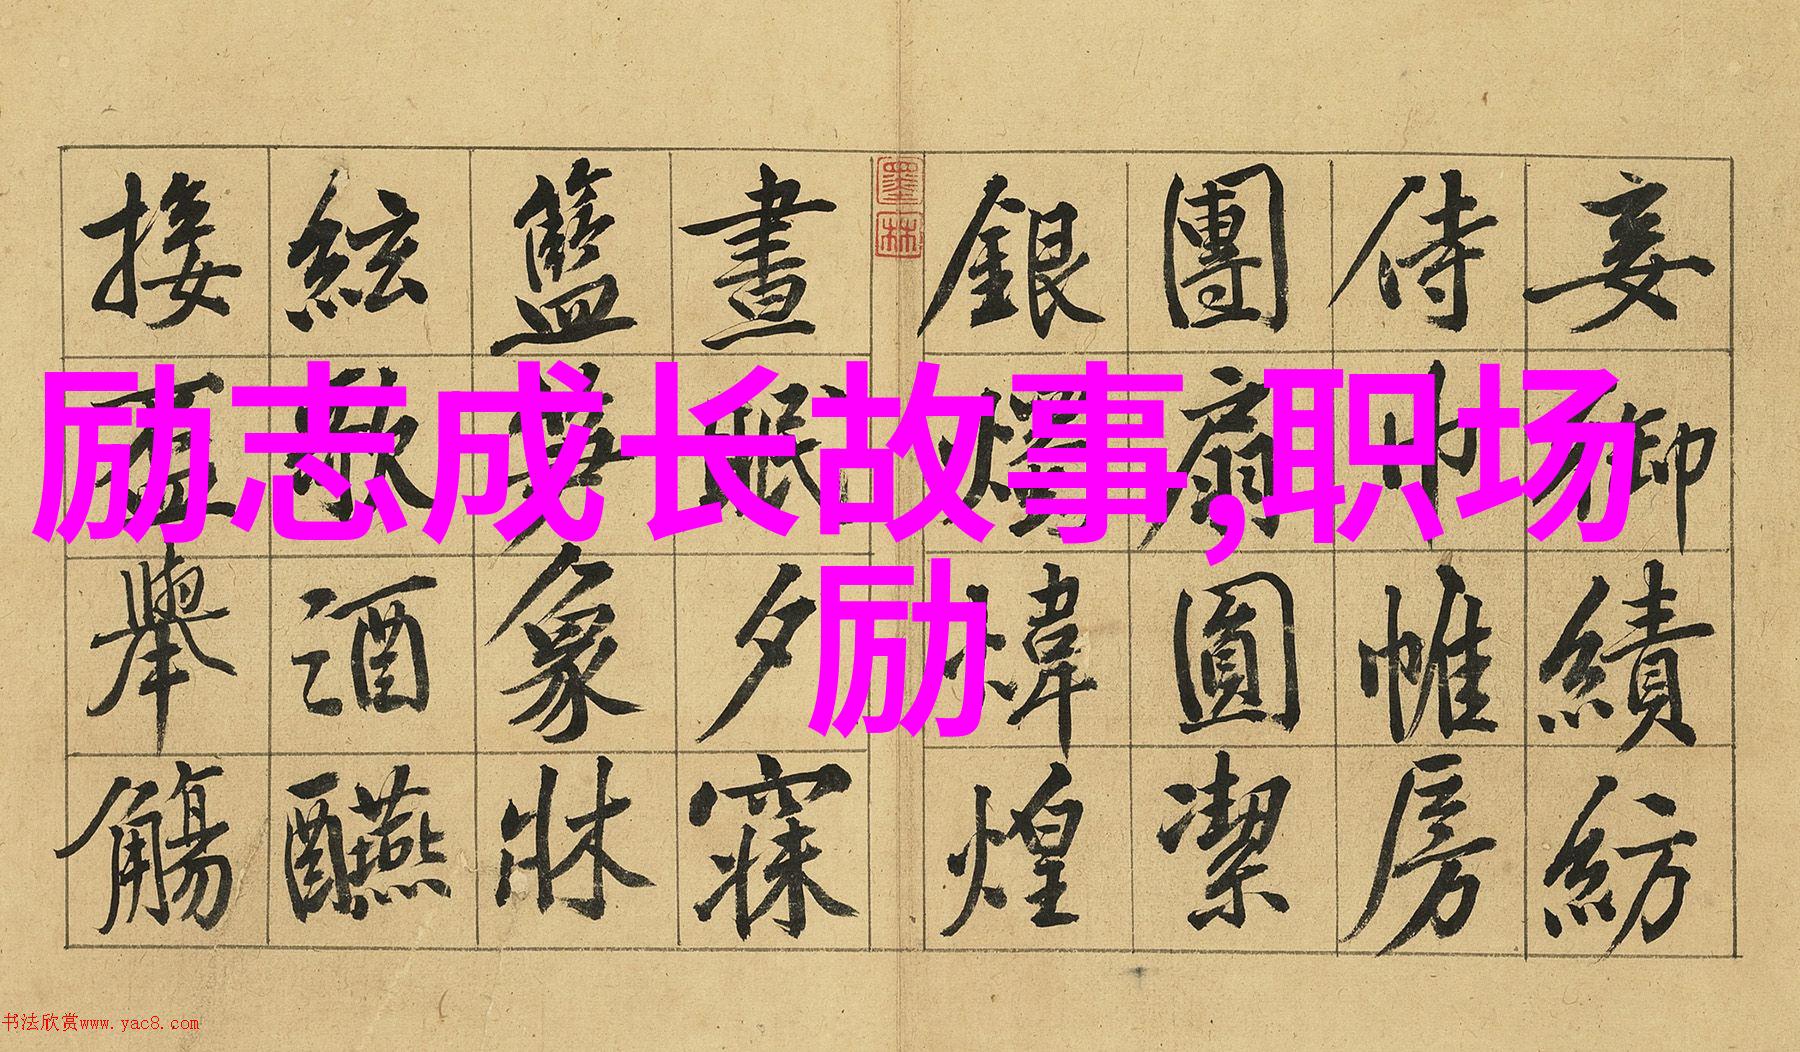 励志成长故事,职场
励
妾御績紡
侍巾帷房
團扇圓潔
銀燭煒煌
墨林
晝眠夕寐
籃象牀
絃歌酒醼
接盃舉觴
书法欣赏www.yac8.com